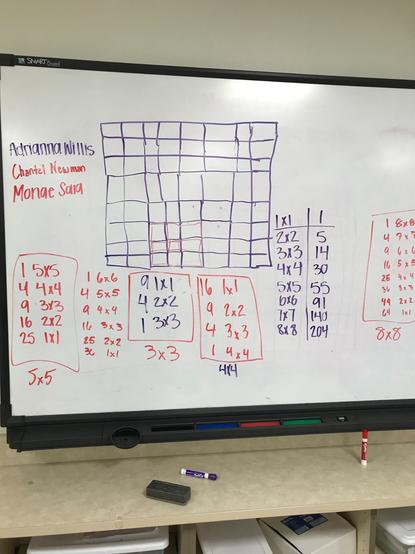 SMART Board
Adrianna Willis
Chantel Newman
Monae Sara
1 5x5
4 4x4
9 3x3
16 2x2
25 1x1
5x5
1 6x6
4 5x5
9 4x4
16 3x3
25 2x2
36 1x1
9 1x1
4 2x2
1 3x3
3x3
16 1x1
9 2x2
4 3x3
1 4x4
4x4
1x1 1
2x2 5
3x3 14
4x4 30
5x5 55
6x6 91
7x7 140
8x8 204
1 8x8
4 7x7
9 6x6
16 5x5
25 4x4
36 3x3
49 2x2
64 1x1
8x8